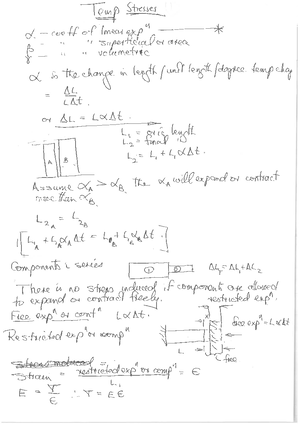 Temp Stresses
α - coeff of linear expⁿ
β - " " superficial or area
γ - " " volumetric
α is the change in length/unit length/degree temp chg
= ΔL / LΔt.
or ΔL = LαΔt.
L₁ = orig length
L₂ = final "
L₂ = L₁ + L₁αΔt.
A B
Assume αA > αB, the αA will expand or contract
more than αB.
L₂A = L₂A
Components in series
① ② ΔLT = ΔL₁ + ΔL₂
There is no stress induced if components are allowed
to expand or contract freely.
restricted expⁿ.
Free expⁿ or contⁿ LαΔt.
free expⁿ = LαΔt
Restricted expⁿ or compⁿ
L
free
Stress induced =
Strain = restricted expⁿ or compⁿ / L₁ = ϵ
E = σ/ϵ ∴ σ = Eϵ